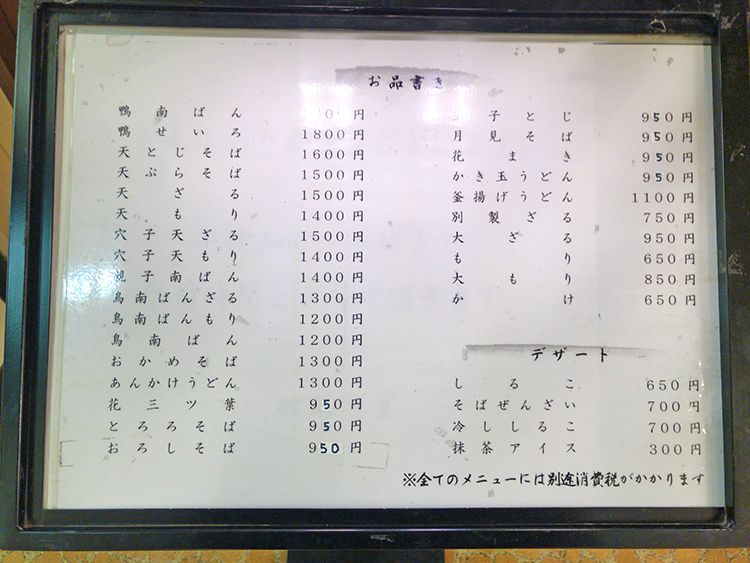 お品書き
鴨南ばん 円
鴨せいろ 1800円
天とじそば 1600円
天ぷらそば 1500円
天ざる 1500円
天もり 1400円
穴子天ざる 1500円
穴子天もり 1400円
親子南ばん 1400円
鳥南ばんざる 1300円
鳥南ばんもり 1200円
鳥南ばん 1200円
おかめそば 1300円
あんかけうどん 1300円
花三ツ葉 950円
とろろそば 950円
おろしそば 950円
子とじ 950円
月見そば 950円
花まき 950円
かき玉うどん 950円
釜揚げうどん 1100円
別製ざる 750円
大ざる 950円
もり 650円
大もり 850円
かけ 650円
デザート
しるこ 650円
そばぜんざい 700円
冷ししるこ 700円
抹茶アイス 300円
※全てのメニューには別途消費税がかかります